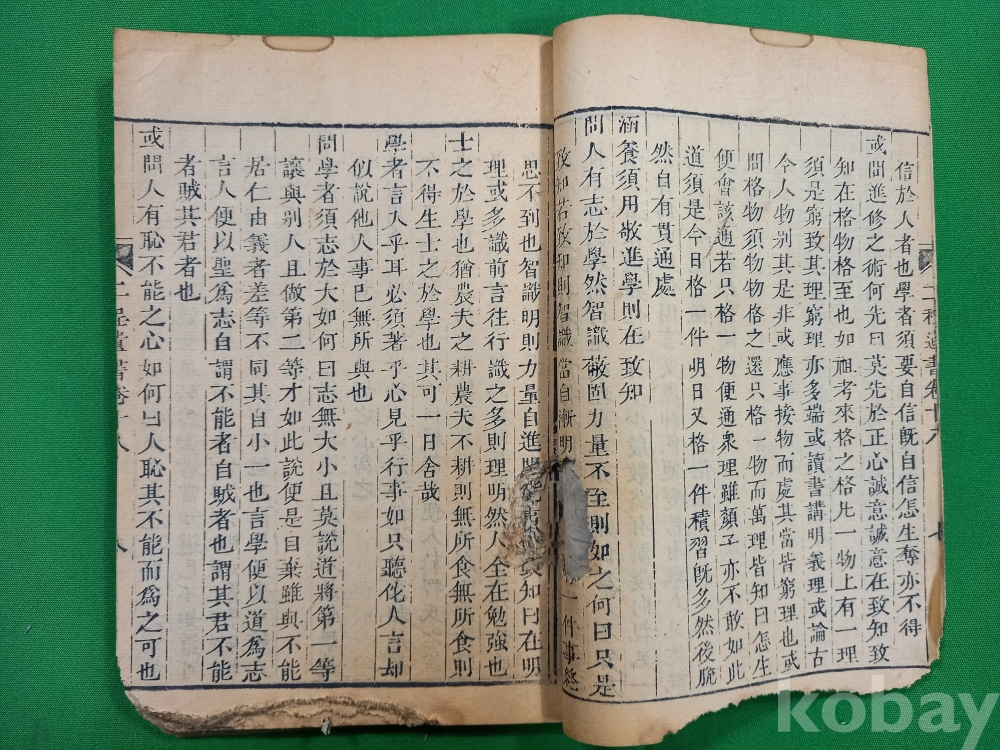 信於人者也學者須要自信旣自信怎生奪亦不得
或問進修之術何先曰莫先於正心誠意誠意在致知致
知在格物格至也如祖考來格之格凡一物上有一理
須是窮致其理窮理亦多端或讀書講明義理或論古
今人物別其是非或應事接物而處其當皆窮理也或
問格物須物物格之還只格一物而萬理皆知曰怎生
便會該通若只格一物便通衆理雖顏子亦不敢如此
道須是今日格一件明日又格一件積習旣多然後脫
然自有貫通處
涵養須用敬進學則在致知
問人有志於學然智識蔽固力量不至則如之何曰只是
致知若致知則智識當自漸明 一件事終
思不到也智識明則力量自進 致知曰在明
理或多識前言往行識之多則理明然人全在勉強也
士之於學也猶農夫之耕農夫不耕則無所食無所食則
不得生士之於學也其可一日舍哉
學者言入乎耳必須著乎心見乎行事如只聽他人言却
似說他人事已無所與也
問學者須志於大如何曰志無大小且莫說道將第一等
讓與別人且做第二等才如此說便是自棄雖與不能
居仁由義者差等不同其自小一也言學便以道爲志
言人便以聖爲志自謂不能者自賊者也謂其君不能
者賊其君者也
或問人有恥不能之心如何曰人恥其不能而爲之可也
二程遺書卷十八
二程遺書卷十八
八
kobay